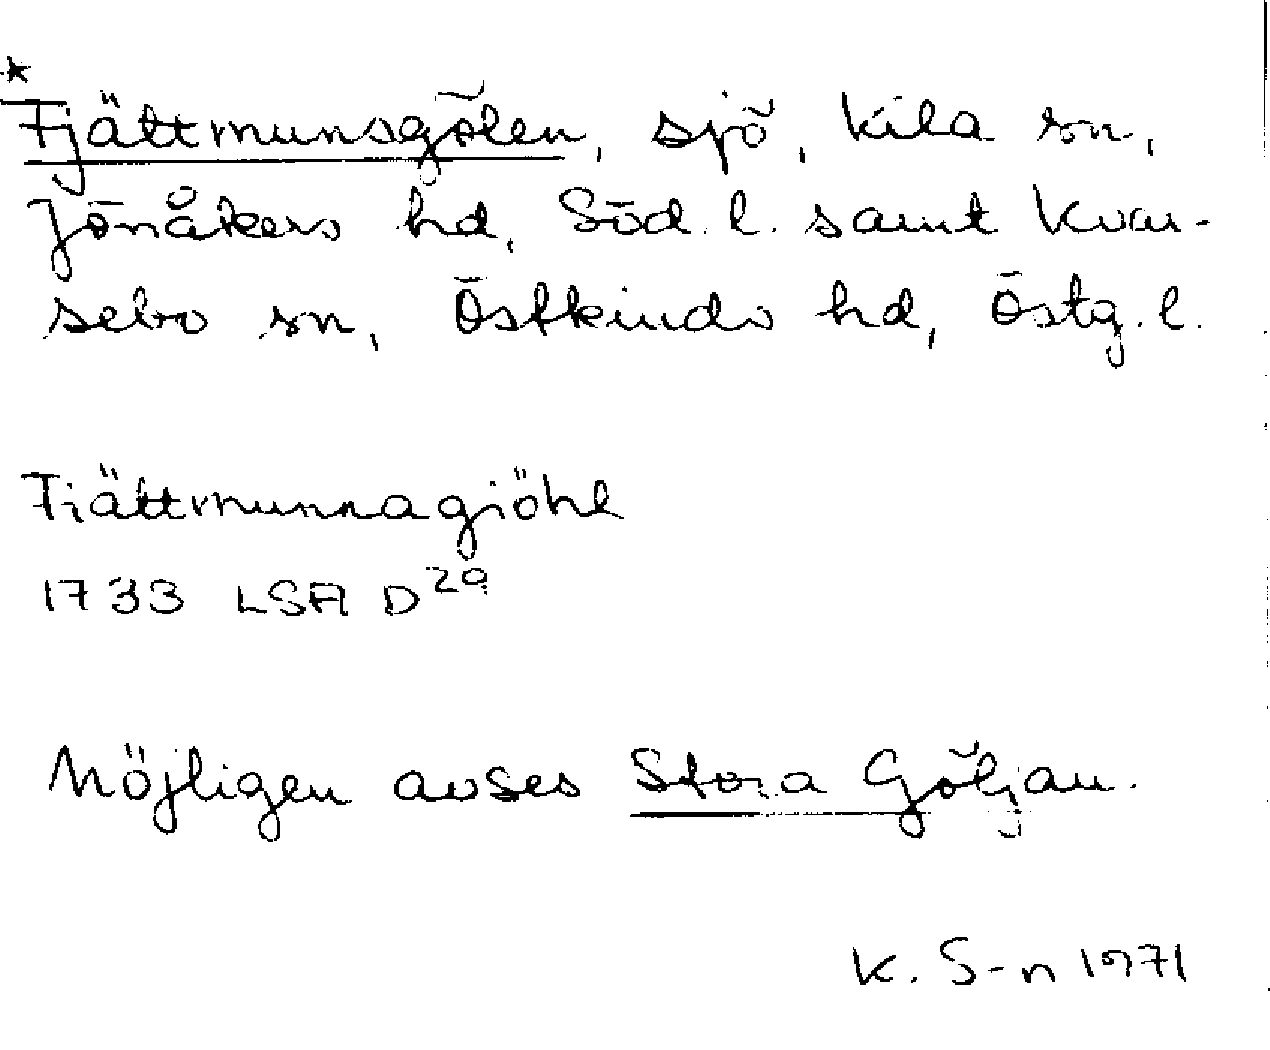 *
Fjättmunsgölen, sjö, Kila sn,
Jönåkers hd, Söd. l. samt Kvar-
sebo sn, Östkinds hd, Östg. l.
Fiättmunnagiöhl
1733 LSA D 29
Möjligen avses Stora Göljan.
K. S-n 1971